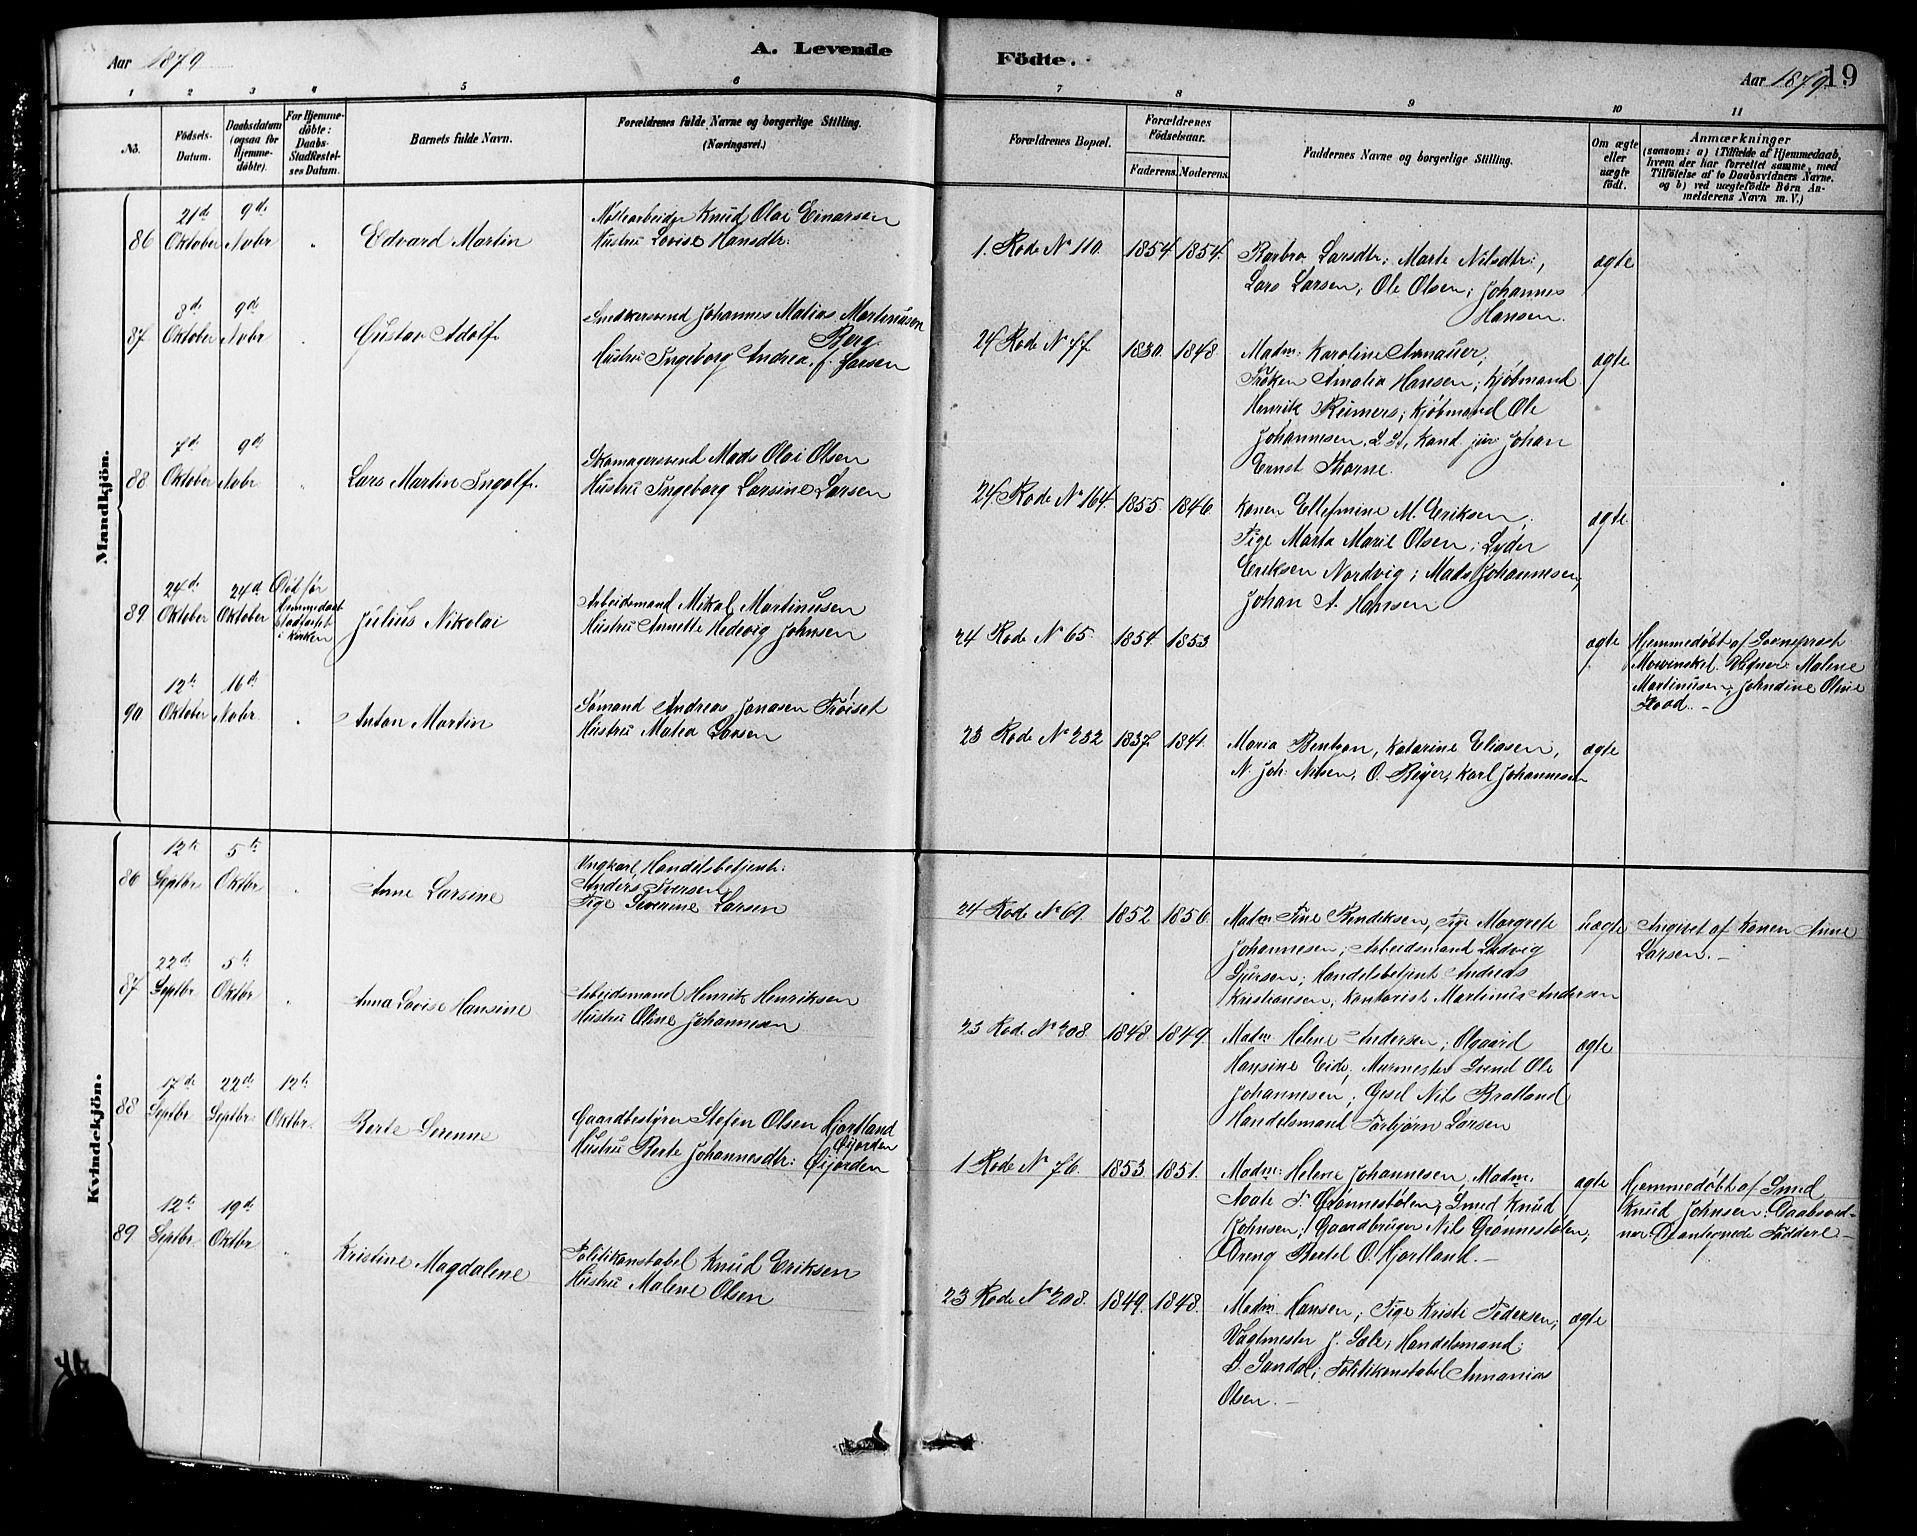 Aar 1879
A. Levende
Födte.
Aar 1879.
19
1 2 3 4 5 6 7 8 9 10 11
No.
Födsels-
Datum.
Daabsdatum
(ogsaa for
Hjemme-
döbte).
For Hjemme-
döbte:
Daabs-
Stadfæstel-
ses Datum.
Barnets fulde Navn.
Forældrenes fulde Navne og borgerlige Stilling.
(Næringsvei.)
Forældrenes Bopæl.
Forældrenes
Födselsaar.
Faderens.
Moderens.
Faddernes Navne og borgerlige Stilling.
Om ægte
eller
uægte
födt.
Anmærkninger
(saasom: a) i Tilfælde af Hjemmedaab,
hvem der har forrettet samme, med
Tilföielse af to Daabsvidners Navne.
og b) ved uægtefödte Börn An-
melderens Navn m. V.)
Mandkjön.
86
21de
Oktober
9de
Novbr
Edvard Martin
Knud Olai Einarsen
Hustru Lovise Hansdtr:
1. Rode No 110.
1854. 1854.
Barbro Larsdtr; Marte Nilsdtr;
Lars Larsen; Ole Olsen; Johannes
Hansen.
ægte
87
3de
Oktober
9de
Novbr
Gustav Adolf.
Snedkersvend Johannes Matias Martinuson
Berg.
Hustru Ingeborg Andrea, f. Jansen
24 Rode No 77.
1830. 1848.
Madm: Karoline
Frøken Amalia Hansen; Kjøbmand
Henrik Reimers; Kjøbmand Ole
Johannesen, Kand. jur Johan
Ernst Thorne.
ægte
88
7de
Oktober
9de
Novbr
Lars Martin Ingolf.
Skomagersvend Mads Olai Olsen
Hustru Ingeborg Larsine Larsen
24. Rode No 164.
1855. 1846.
Konen Ellefmine M. Eriksen,
Pige Marta Marie Olsen; Lyder
Eriksen Nordvig; Mads Johannesen,
Johan A. Hansen
ægte.
89
24de
Oktober
24de
Oktober
Død før
Hjemmedaab
stadfæstet
i Kirken
Julius Nikolai
Arbeidsmand Mikal Martinusen
Hustru Annette Hedevig Johnsen
24 Rode No 65.
1854. 1853
ægte
Hjemmedøbt af Sogneprest
Mowinckel. Vidner: Malene
Martinusen, Johndine Oline
Flood. —
90
12te
Oktober
16de
Novbr
Anton Martin
Sømand Andreas Jonasen Frøiset
Hustru Matea Larsen
23 Rode No 232
1837. 1841.
Maria Bentzon, Katarine Eliasen,
N. Joh. Nilsen, O. Beyer, Karl Johannesen
ægte
Kvindekjön.
86
12te
Septbr
5te
Oktbr
Anne Larsine
Ungkarl, Handelsbetjent:
Anders Iversen
Pige Severine Larsen
24 Rode No 69.
1852. 1856.
Madm Tine Bendiksen, Pige Margrete
Johannesen; Arbeidsmand Ludvig
Iversen; Handelsbetjent Andreas
Kristiansen, Kontorist Martinus Andersen
Uægte
Angivet af Konen Anne
Larsen. —
87
22de
Septbr
5te
Oktbr
Anna Lovise Hansine
Arbeidsmand Henrik Henriksen
Hustru Oline Johannesen
23 Rode No 208
1848. 1849.
Madm Helene Andersen; Olgaard
Hansine Eide; Murmester Svend Ole
Johannesen; Gesel Nils Bratland
Handelsmand Torbjørn Larsen
ægte
88
17de
Septbr
22de
Septbr.
12te
Oktbr.
Berte Serenne
Gaardbestyrer Stefen Olsen Hjortland
Øijorden
Hustru Berte Johannesdtr: Øijorden
1 Rode No 76.
1853. 1851.
Madm: Helene Johannesen, Madm:
Aaate F. Grønnestølen, Smed Knud
Johnsen, Gaardbruger Nils Grønnestølen,
Dreng Bertel O. Hjortland. —
ægte
Hjemmedøbt af Smed
Knud Johnsen. Daabsvid-
ner: Omtegnede Faddere —
89
12te
Septbr
19de
Oktbr
Kristine Magdalene
Politikonstabel Knud Eriksen
Hustru Malene Olsen
23 Rode No 208.
1849. 1848.
Madm Hansen, Pige Kristi Pedersen;
Vagtmester J. Sæle, Handelsmand
A. Sandal; Politikonstabel Annanias
Olsen. —
ægte